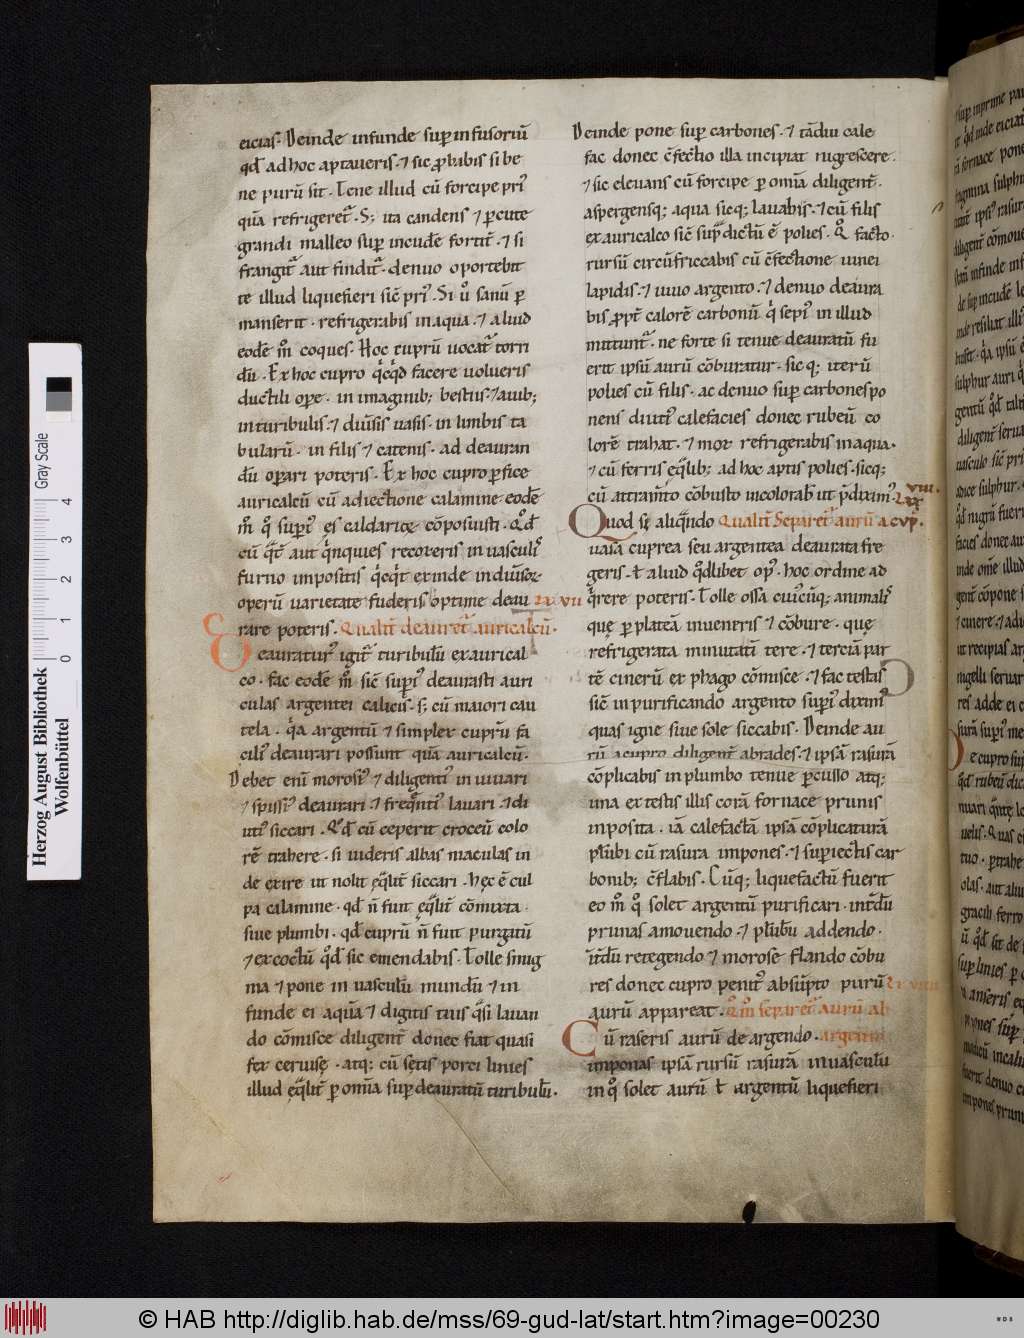 eicias. Deinde infunde sup infusoriū
qd̄ ad hoc aptaueris. ⁊ sic ꝓbabis si be
ne purū sit. Tene illud cū forcipe pri᾿
quā refrigeret᷑. S; ita candens ⁊ ꝑcute
grandi malleo sup incude fortit̄. ⁊ si
frangit᷑ aut findit᷑. denuo oportebit
te illud liquefieri sic̄ pri᾿. Si ů sanū ꝑ
manserit. refrigerabis in aqua. ⁊ aliud
eodē m̊ coques. Hoc cuprū uocat᷑ torri
dū. Ex hoc cupro qͥcqͥd facere uolueris
ductili oꝑe. in imaginib; bestiis. ⁊ auib;
in turibulis. ⁊ diu̾sis uasis. in limbis ta
bularū. in filis ⁊ catenis. ad deauran
dū oꝑari poteris. Ex hoc cupro ꝑfice
auricalcū cū adiectione calamine. eodē
m̊ qͦ supi᾿ ęs caldarię cōposuisti. Qd̄
cū qͣt̄ aut qͥnquies recoxeris in uasculi᾿
furno impositis qͥcqͥt exinde in diu̾soꝝ
operū uarietate fuderis optime deau LXVII
rare poteris. Qualit̄ deauret᷑ auricalcū.
Deauratur᾿ igit᷑ turibulū ex aurical
co. fac eodē m̊ sic̄ supi᾿ deaurasti auri
culas argentei calicis. s; cū maiori cau
tela. qͥa argentū ⁊ simplex cuprū fa
cili᾿ deaurari possunt quā auricalcū.
Debet eni morosi᾿ ⁊ diligenti᾿ inuiuari
⁊ spissi᾿ deaurari. ⁊ freq̄nti᾿ lauari. ⁊ di
uti᾿ siccari. Qd̄ cū ceperit croceū colo
rē trahere. si uideris albas maculas in
de exire ut nolit ęqlit̄ siccari. hęc ē cul
pa calamine. qd̄ n̄ fuit ęqlit̄ cōmixta.
siue plumbi. qd̄ cuprū n̄ fuit purgatū
⁊ excoctū qd̄ sic emendabis. Tolle smig
ma ⁊ pone in uasculū mundū ⁊ in
funde ei aquā ⁊ digitis tuis qͣsi lauan
do cōmisce diligent̄ donec fiat quasi
fex ceruisę. atq; cū sętis porci linies
illud ęqlit̄ ꝑ omīa sup deauratū turibulū.
Deinde pone sup carbones. ⁊ tādiu cale
fac donec c̄fectio illa incipiat nigrescere.
⁊ sic eleuans cū forcipe ꝑ omīa diligent̄.
aspergensq; aqua sicq; lauabis. ⁊ cū filis
ex auricalco sic̄ sup dictū ē polies. Qͦ facto.
rursū circūfriccabis cū c̄fectione uinei
lapidis. ⁊ uiuo argento. ⁊ denuo deaura
bis. ꝓpt̄ calorē carbonū qͥ sepi᾿ in illud
mittunt᷑. ne forte si tenue deauratū fu
erit ipsū aurū cōburatur. sicq; iterū
polies cū filis. ac denuo sup carbones po
nens diuti᾿ calefacies donec rubeū co
lorē trahat. ⁊ mox refrigerabis in aqua.
⁊ cū ferris eqlib; ad hoc aptis polies. sicq;
cū attram̄to cōbusto incolorab̄ ut p̄dixim᾿. LXVIII.
Quod sę aliqn̄do Qualit̄ Separet᷑ aurū a cup̄.
uasa cuprea seu argentea deaurata fre
geris. ł aliud qdlibet op᾿. hoc ordine ad
qͥrere poteris. Tolle ossa cui᾿cūq; animali᾿
quę ꝑ plateā inueneris ⁊ cōbure. quę
refrigerata minutati tere. ⁊ terciā par
tē cinerū ex phago cōmisce. ⁊ fac testas
sic̄ in purificando argento supi᾿ dixim᾿
quas igne siue sole siccabis. Deinde au
rū a cupro diligent̄ abrades. ⁊ ipsā rasurā
cōplicabis in plumbo tenue ꝑcusso atq;
una ex testis illis corā fornace prunis
inposita. iā calefactā ipsā cōplicaturā
plūbi cū rasura impones. ⁊ supiectis car
bonib; c̄flabis. Cūq; liquefactū fuerit
eo m̊ qͦ solet argentū purificari. int̄dū
prunas amouendo. ⁊ plūbū addendo.
int̄dū retegendo ⁊ morose flando cōbu
res donec cupro penit᾿ absūpto purū LXVIIII
aurū appareat. Qͦm̊ separet᷑ aurū ab
Cū raseris aurū de argendo. argento
imponas ipsā rursū rasurā in uasculū
in qͦ solet aurū ł argentū liquefieri
Herzog August Bibliothek
Wolfenbüttel
Gray Scale
0 1 2 3 4
© HAB http://diglib.hab.de/mss/69-gud-lat/start.htm?image=00230